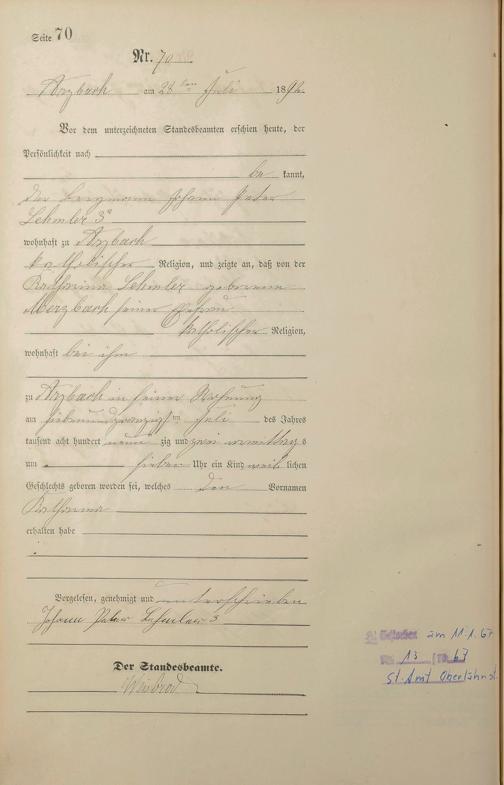 Seite 70
Nr. 70
Arzbach am 28ten Juli 1892.
Vor dem unterzeichneten Standesbeamten erschien heute, der
Persönlichkeit nach
be kannt,
der Bergmann Johann Peter
Lehmler 3r
wohnhaft zu Arzbach
katholischer Religion, und zeigte an, daß von der
Katharina Lehmler geborenen
Merzbach seiner Ehefrau
katholischer Religion,
wohnhaft bei ihm
zu Arzbach in seiner Wohnung
am siebenundzwanzigsten Juli des Jahres
tausend acht hundert neun zig und zwei vormittags
um sieben Uhr ein Kind weib lichen
Geschlechts geboren worden sei, welches den Vornamen
Katharina
erhalten habe
Vorgelesen, genehmigt und unterschrieben
Johann Peter Lehmler 3
Der Standesbeamte.
am 11.1.67
13 67
St. Amt